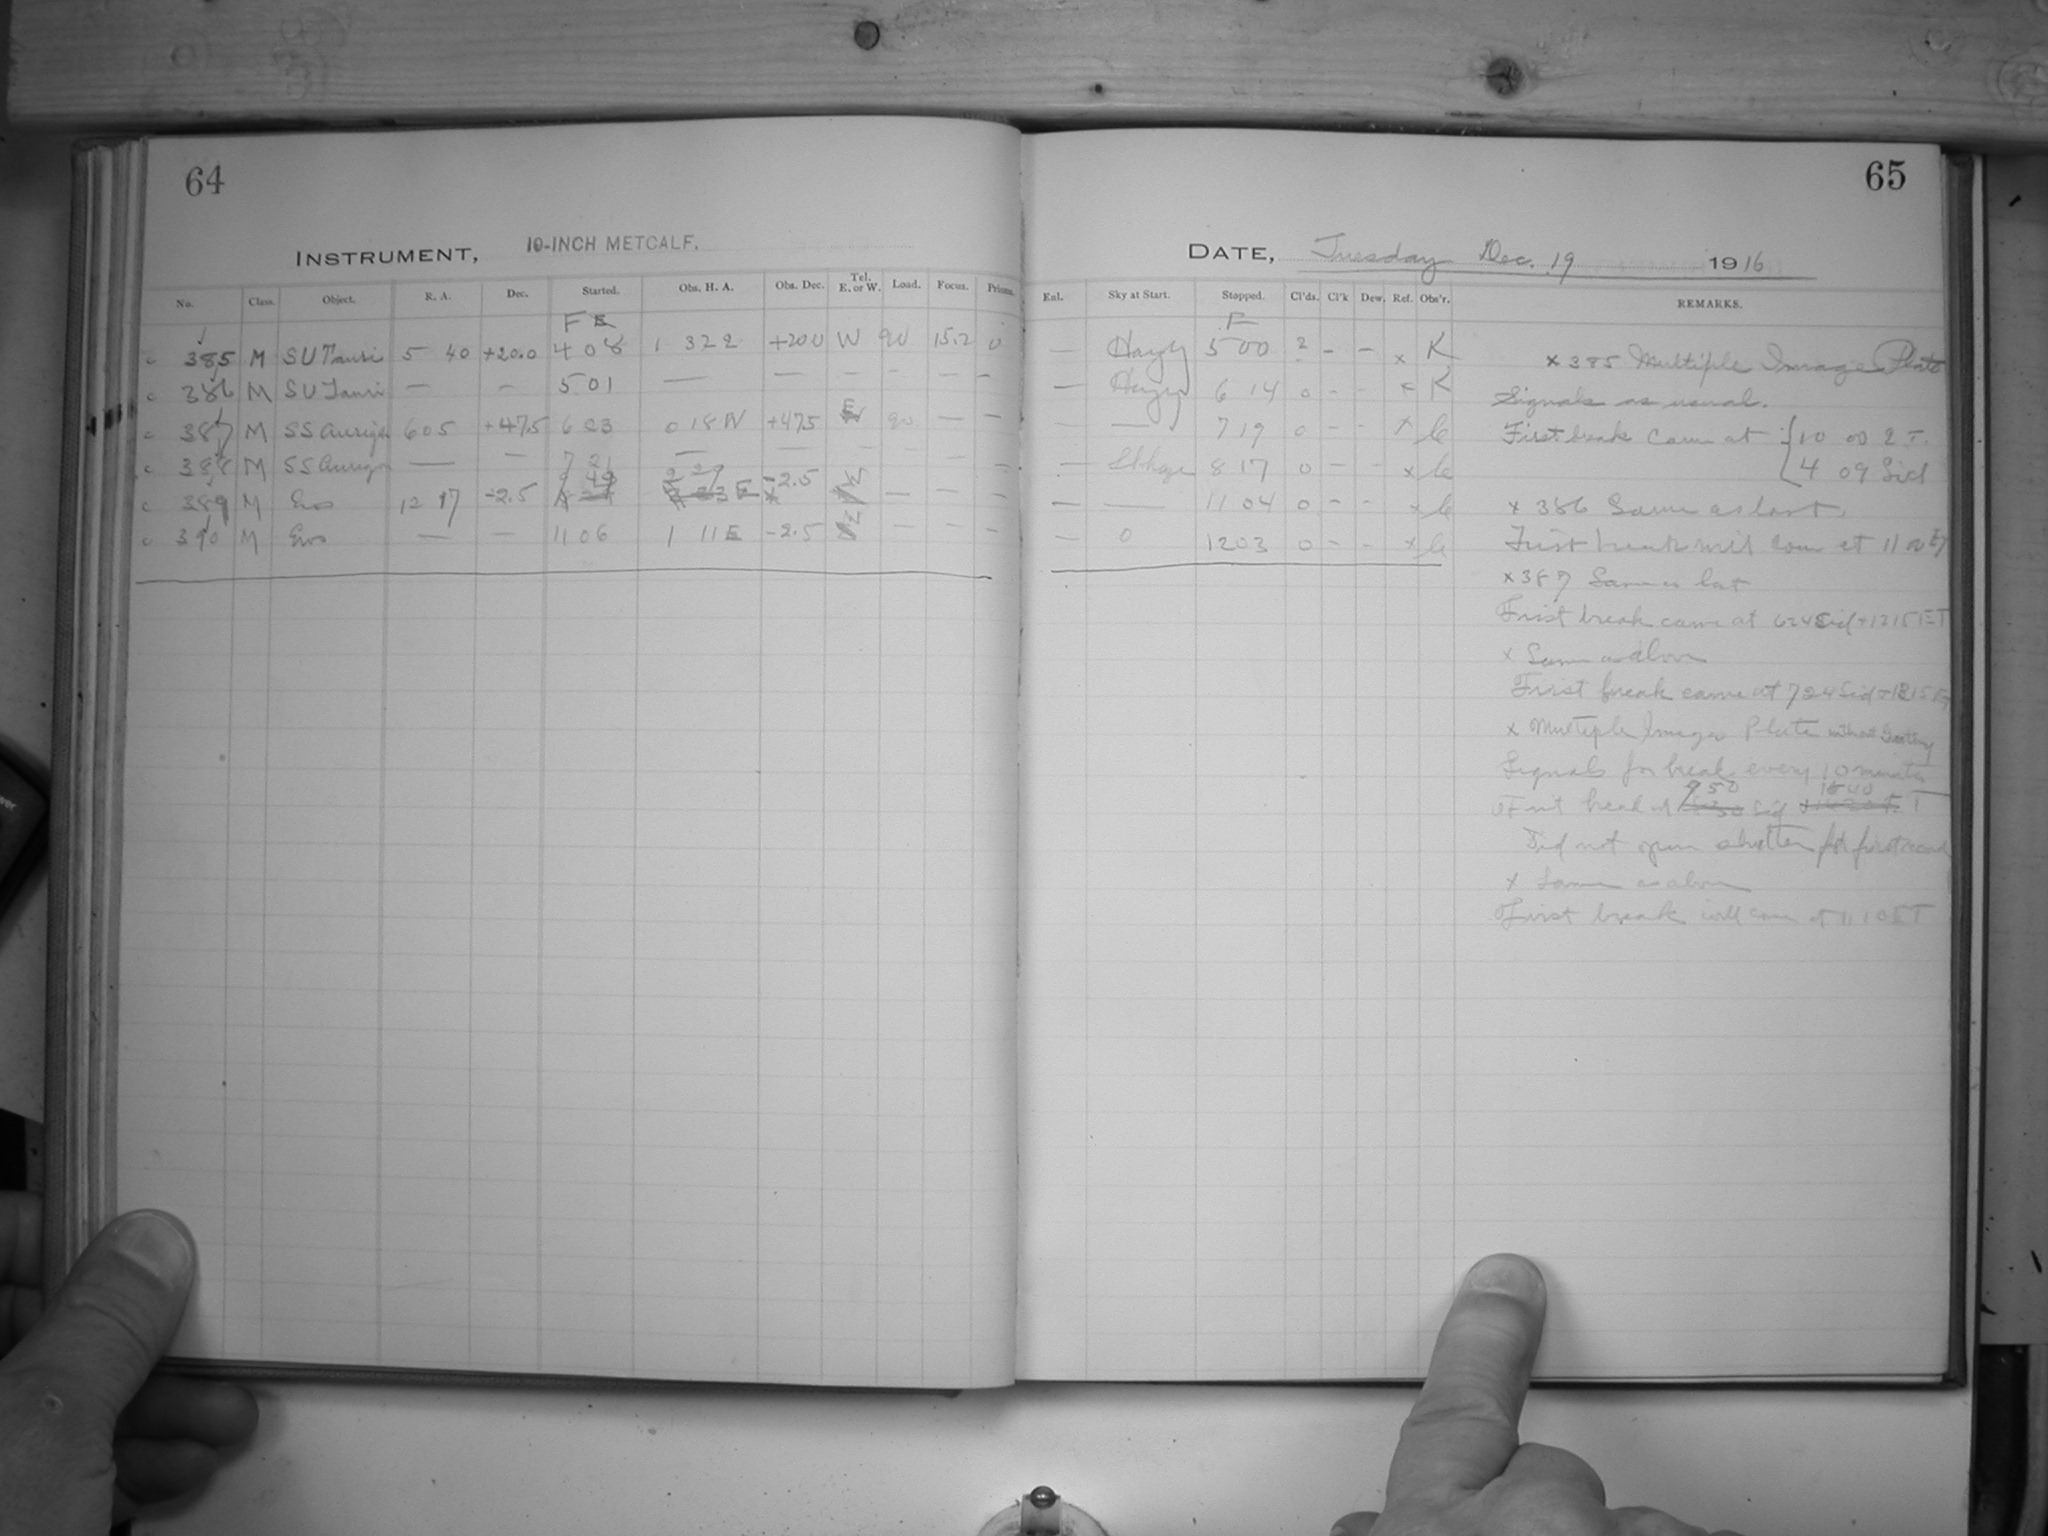 64
INSTRUMENT, 10-INCH METCALF.
No. Class. Object. R. A. Dec. Started. Obs. H. A. Obs. Dec. Tel. E. or W. Load. Focus. Prisms.
F E
c 385 M SU Tauri 5 40 +20.0 4 08 1 32 E +20.0 W 90 15.2 0
c 386 M SU Tauri — — 5 01 — — — — — —
c 387 M SS Aurigae 6 05 +47.5 6 23 0 18 W +47.5 E 90 — —
c 388 M SS Aurigae — — 7 21 — — — —
c 389 M Eros 12 17 -2.5 9 49 2 27 E -2.5 W — — —
c 390 M Eros — — 11 06 1 11 E -2.5 — — —
65
DATE, Tuesday Dec. 19 1916
Exl. Sky at Start. Stopped. Cl'ds. Cl'k Dew. Ref. Obs'r. REMARKS.
F
— Hazy 5 00 2 - - x K
— Hazy 6 14 0 - - x K
— — 7 19 0 - - x C
— 8 17 0 - - x C
— — 11 04 0 - - x C
— 0 12 03 0 - - x C
x 385 Multiple Image Plate
Signals as usual.
First break came at 10 00 E T.
4 09 Sid
x 386 Same as last
First break will come at 11 00 ET
x 387 Same as last
First break came at 624 Sid + 1215 ET
x Same as above
First break came at 724 Sid + 1315 ET
x Multiple Image Plate without Grating
Signals for break every 10 minutes
First break at 9 50 Sid 15 40 T
Did not open shutter for first
x Same as above
First break will come at 11 10 ET